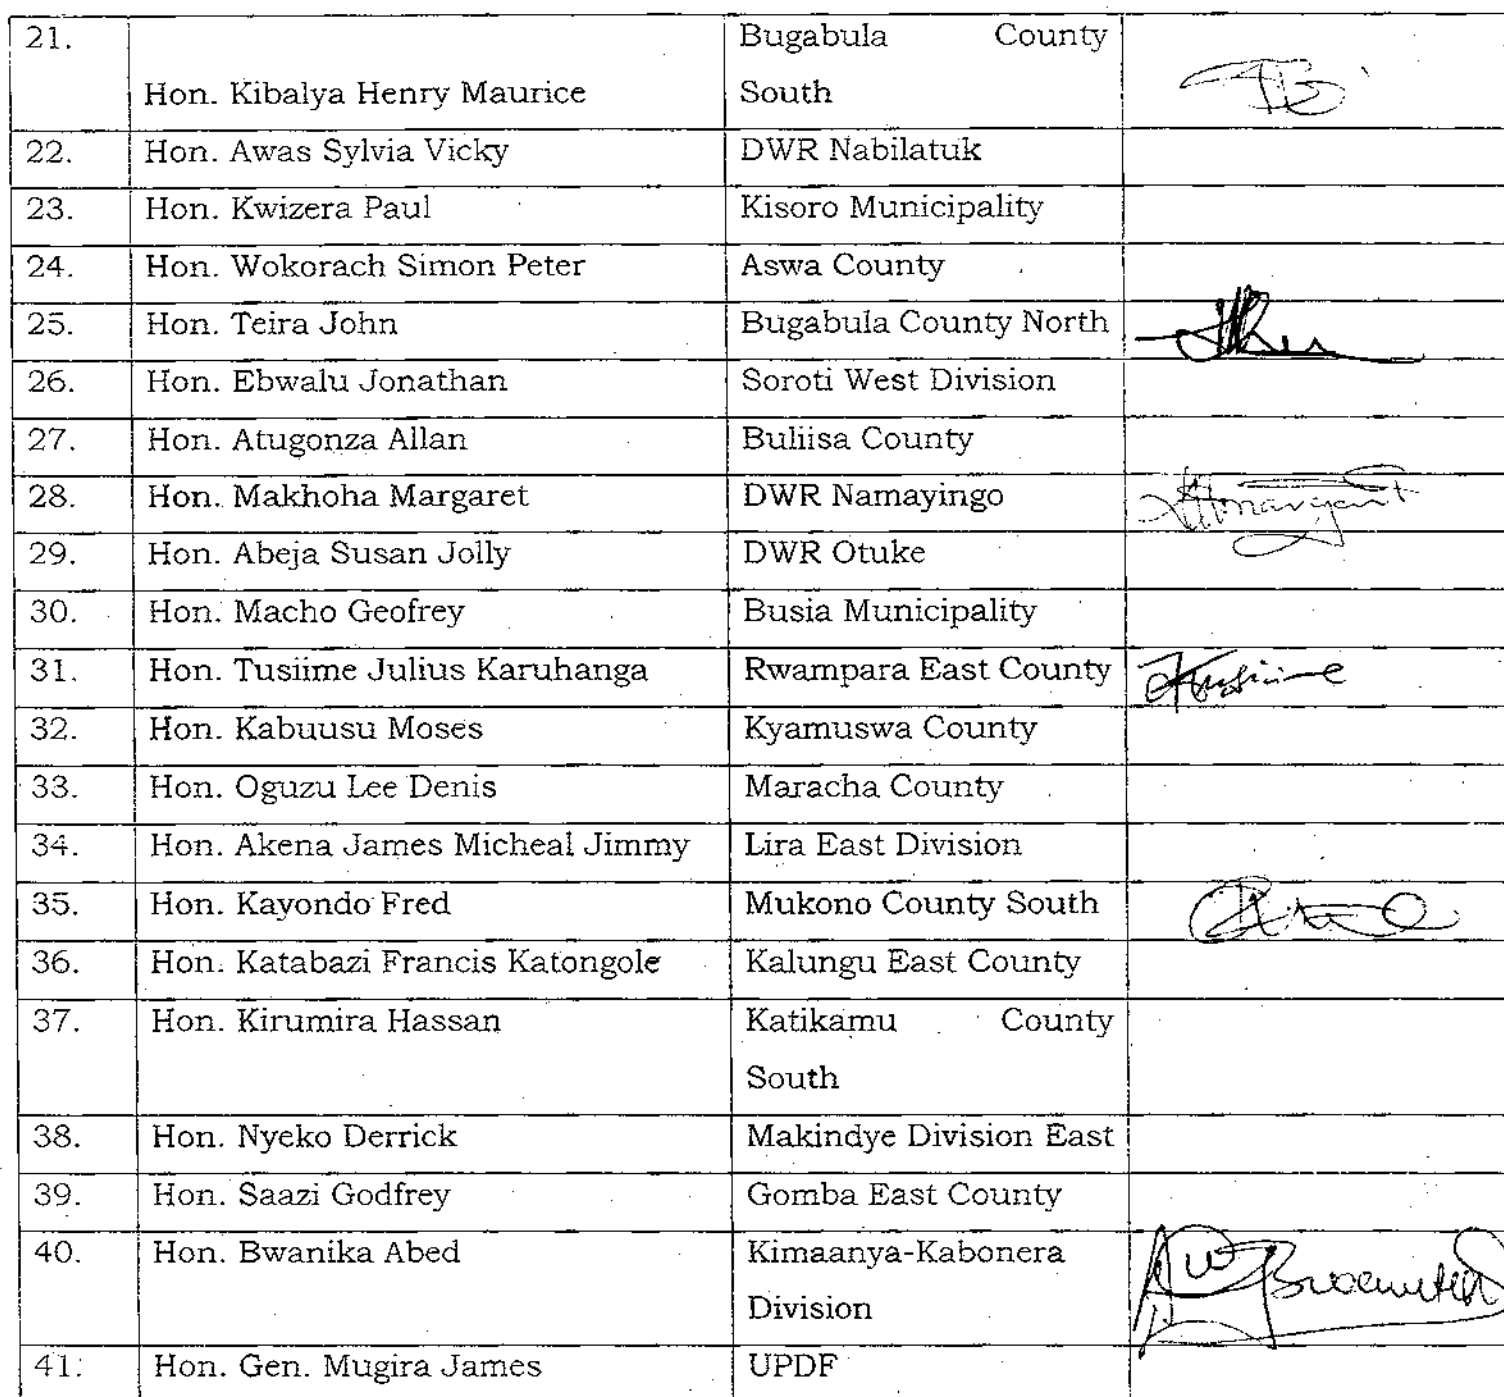 21. Bugabula County
Hon. Kibalya Henry Maurice South
22. Hon. Awas Sylvia Vicky DWR Nabilatuk
23. Hon. Kwizera Paul Kisoro Municipality
24. Hon. Wokorach Simon Peter Aswa County
25. Hon. Teira John Bugabula County North
26. Hon. Ebwalu Jonathan Soroti West Division
27. Hon. Atugonza Allan Buliisa County
28. Hon. Makhoha Margaret DWR Namayingo
29. Hon. Abeja Susan Jolly DWR Otuke
30. Hon. Macho Geofrey Busia Municipality
31. Hon. Tusiime Julius Karuhanga Rwampara East County
32. Hon. Kabuusu Moses Kyamuswa County
33. Hon. Oguzu Lee Denis Maracha County
34. Hon. Akena James Micheal Jimmy Lira East Division
35. Hon. Kayondo Fred Mukono County South
36. Hon. Katabazi Francis Katongole Kalungu East County
37. Hon. Kirumira Hassan Katikamu County
South
38. Hon. Nyeko Derrick Makindye Division East
39. Hon. Saazi Godfrey Gomba East County
40. Hon. Bwanika Abed Kimaanya-Kabonera
Division
41. Hon. Gen. Mugira James UPDF